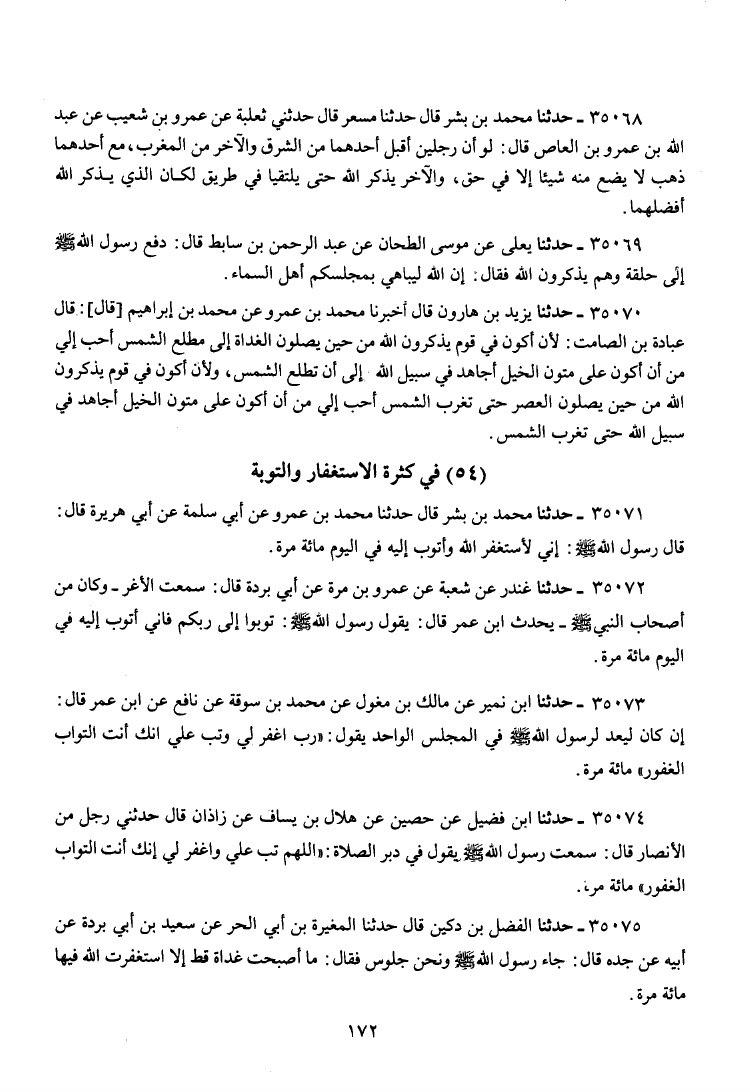 ٣٥٠٦٨ ـ حدثنا محمد بن بشر قال حدثنا مسعر قال حدثني ثعلبة عن عمرو بن شعيب عن عبد
الله بن عمرو بن العاص قال: لو أن رجلين أقبل أحدهما من الشرق والآخر من المغرب، مع أحدهما
ذهب لا يضع منه شيئا إلا في حق، والآخر يذكر الله حتى يلتقيا في طريق لكان الذي يذكر الله
أفضلهما.
٣٥٠٦٩ ـ حدثنا يعلى عن موسى الطحان عن عبد الرحمن بن سابط قال: دفع رسول اللهﷺ
إلى حلقة وهم يذكرون الله فقال: إن الله ليباهي بمجلسكم أهل السماء.
٣٥٠٧٠ ـ حدثنا يزيد بن هارون قال أخبرنا محمد بن عمرو عن محمد بن إبراهيم [قال]: قال
عبادة بن الصامت: لأن أكون في قوم يذكرون الله من حين يصلون الغداة إلى مطلع الشمس أحب إلي
من أن أكون على متون الخيل أجاهد في سبيل الله إلى أن تطلع الشمس، ولأن أكون في قوم يذكرون
الله من حين يصلون العصر حتى تغرب الشمس أحب إلي من أن أكون على متون الخيل أجاهد في
سبيل الله حتى تغرب الشمس.
(٥٤) في كثرة الاستغفار والتوبة
٣٥٠٧١ ـ حدثنا محمد بن بشر قال حدثنا محمد بن عمرو عن أبي سلمة عن أبي هريرة قال:
قال رسول اللهﷺ: إني لأستغفر الله وأتوب إليه في اليوم مائة مرة.
٣٥٠٧٢ ـ حدثنا غندر عن شعبة عن عمرو بن مرة عن أبي بردة قال: سمعت الأغر ـ وكان من
أصحاب النبيﷺ ـ يحدث ابن عمر قال: يقول رسول اللهﷺ: توبوا إلى ربكم فاني أتوب إليه في
اليوم مائة مرة.
٣٥٠٧٣ ـ حدثنا ابن نمير عن مالك بن مغول عن محمد بن سوقة عن نافع عن ابن عمر قال:
إن كان ليعد لرسول اللهﷺ في المجلس الواحد يقول: «رب اغفر لي وتب علي انك أنت التواب
الغفور» مائة مرة.
٣٥٠٧٤ ـ حدثنا ابن فضيل عن حصين عن هلال بن يساف عن زاذان قال حدثني رجل من
الأنصار قال: سمعت رسول اللهﷺ يقول في دبر الصلاة: «اللهم تب علي واغفر لي إنك أنت التواب
الغفور» مائة مرة.
٣٥٠٧٥ ـ حدثنا الفضل بن دكين قال حدثنا المغيرة بن أبي الحر عن سعيد بن أبي بردة عن
أبيه عن جده قال: جاء رسول اللهﷺ ونحن جلوس فقال: ما أصبحت غداة قط إلا استغفرت الله فيها
مائة مرة.
١٧٢